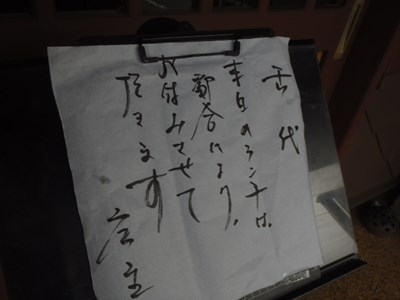 舌代
本日のランチは、
都合により、
お休みさせて
頂きます
店主